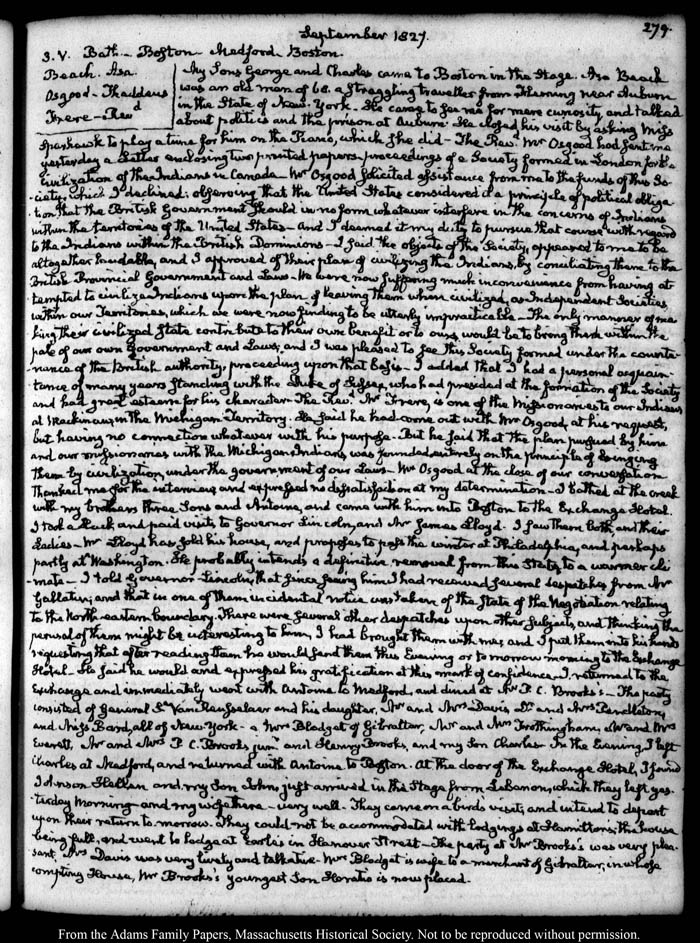 279.
September 1827.
3. V. Bath - Boston - Medford. Boston.
Beach. Asa.
Osgood - Thaddeus
Frere - Revd
My Sons George and Charles came to Boston in the Stage. Asa Beach
was an old man of 60. a straggling traveller from near Auburn
in the State of New-York - He came to see me for mere curiosity, and talked
about politics and the prison at Auburn. He closed his visit by asking Miss
Sparhawk to play a tune for him on the Piano, which she did - The Revd. Mr Osgood had sent me
yesterday a Letter enclosing two printed papers - proceedings of a Society formed in London for the
civilization of the Indians in Canada - Mr Osgood solicited assistance from me to the funds of this So-
ciety, which I declined; observing that the United States considered it a principle of political obliga-
tion that the British Government should in no form whatever interfere in the concerns of Indians
within the territories of the United States - And I deemed it my duty to pursue that course with regard
to the Indians within the British Dominions - I said the objects of the Society, appeared to me to be
altogether laudable, and I approved of their plan of civilizing the Indians, by conciliating them to the
British Provincial Government and Laws - We were now suffering much inconvenience from having at-
tempted to civilize Indians upon the plan of leaving them when civilized, as Independent Societies
within our Territories, which we were now finding to be utterly impracticable - The only manner of ma-
king their civilized State contribute to their own benefit or to ours, would be to bring them within the
pale of our own Government and Laws, and I was pleased to see this Society formed under the counte-
nance of the British authority, proceeding upon that basis - I added that I had a personal acquain-
tance of many years standing with the Duke of Sussex, who had presided at the formation of the Society
and had great esteem for his character - The Revd. Mr Frere, is one of the Missionaries to our Indians
at Mackinaw, in the Michigan Territory. He said he had come out with Mr Osgood, at his request,
but having no connection whatever with his purpose. But he said that the plan pursued by him
and our missionaries with the Michigan Indians, was founded entirely on the principle of bringing
them by civilization, under the government of our Laws - Mr Osgood at the close of our conversation
thanked me for the interview, and expressed no dissatisfaction at my determination - I bathed at the creek
with my brother's three Sons and Antoine, and came with him into Boston to the Exchange Hotel.
I took a Hack and paid visits to Governor Lincoln, and Mr James Lloyd. I saw them both, and their
Ladies - Mr Lloyd has sold his house, and proposes to pass the winter at Philadelphia, and perhaps
partly at Washington. He probably intends a definitive removal from this State, to a warmer cli-
mate - I told Governor Lincoln, that since seeing him I had received several despatches from Mr
Gallatin, and that in one of them incidental notice was taken of the State of the Negotiation relating
to the North-eastern boundary. There were several other despatches upon other subjects, and thinking the
perusal of them might be interesting to him, I had brought them with me, and I put them into his hands
requesting that after reading them he would send them this Evening or to morrow morning to the Exchange
Hotel - He said he would and expressed his gratification at this mark of confidence. I returned to the
Exchange and immediately went with Antoine to Medford, and dined at Mr P. C. Brooks's - The party
consisted of General S. Van Rensselaer and his daughter, Mr and Mrs Davis and Mrs Pendleton,
and Miss Bard, all of New York - a Mrs Blodget of Gibraltar, Mr and Mrs Frothingham, Mr and Mrs
Everett, Mr and Mrs P. C. Brooks junr. and Henry Brooks, and my Son Charles. In the Evening, I left
Charles at Medford, and returned with Antoine to Boston. At the door of the Exchange Hotel, I found
Johnson Hellen and my Son John, just arrived in the Stage from Lebanon, which they left yes-
terday Morning - and my wife there - very well - They came on a bird's visit, and intend to depart
upon their return to morrow. They could not be accommodated with lodgings at Hamilton's; the house
being full, and went to lodge at Earle's in Hanover Street - The party at Mr Brooks's was very plea-
sant. Mrs Davis was very lively and talkative - Mrs Blodget is wife to a merchant of Gibraltar, in whose
compting House, Mr Brooks's youngest Son Horatio is now placed.
From the Adams Family Papers, Massachusetts Historical Society. Not to be reproduced without permission.